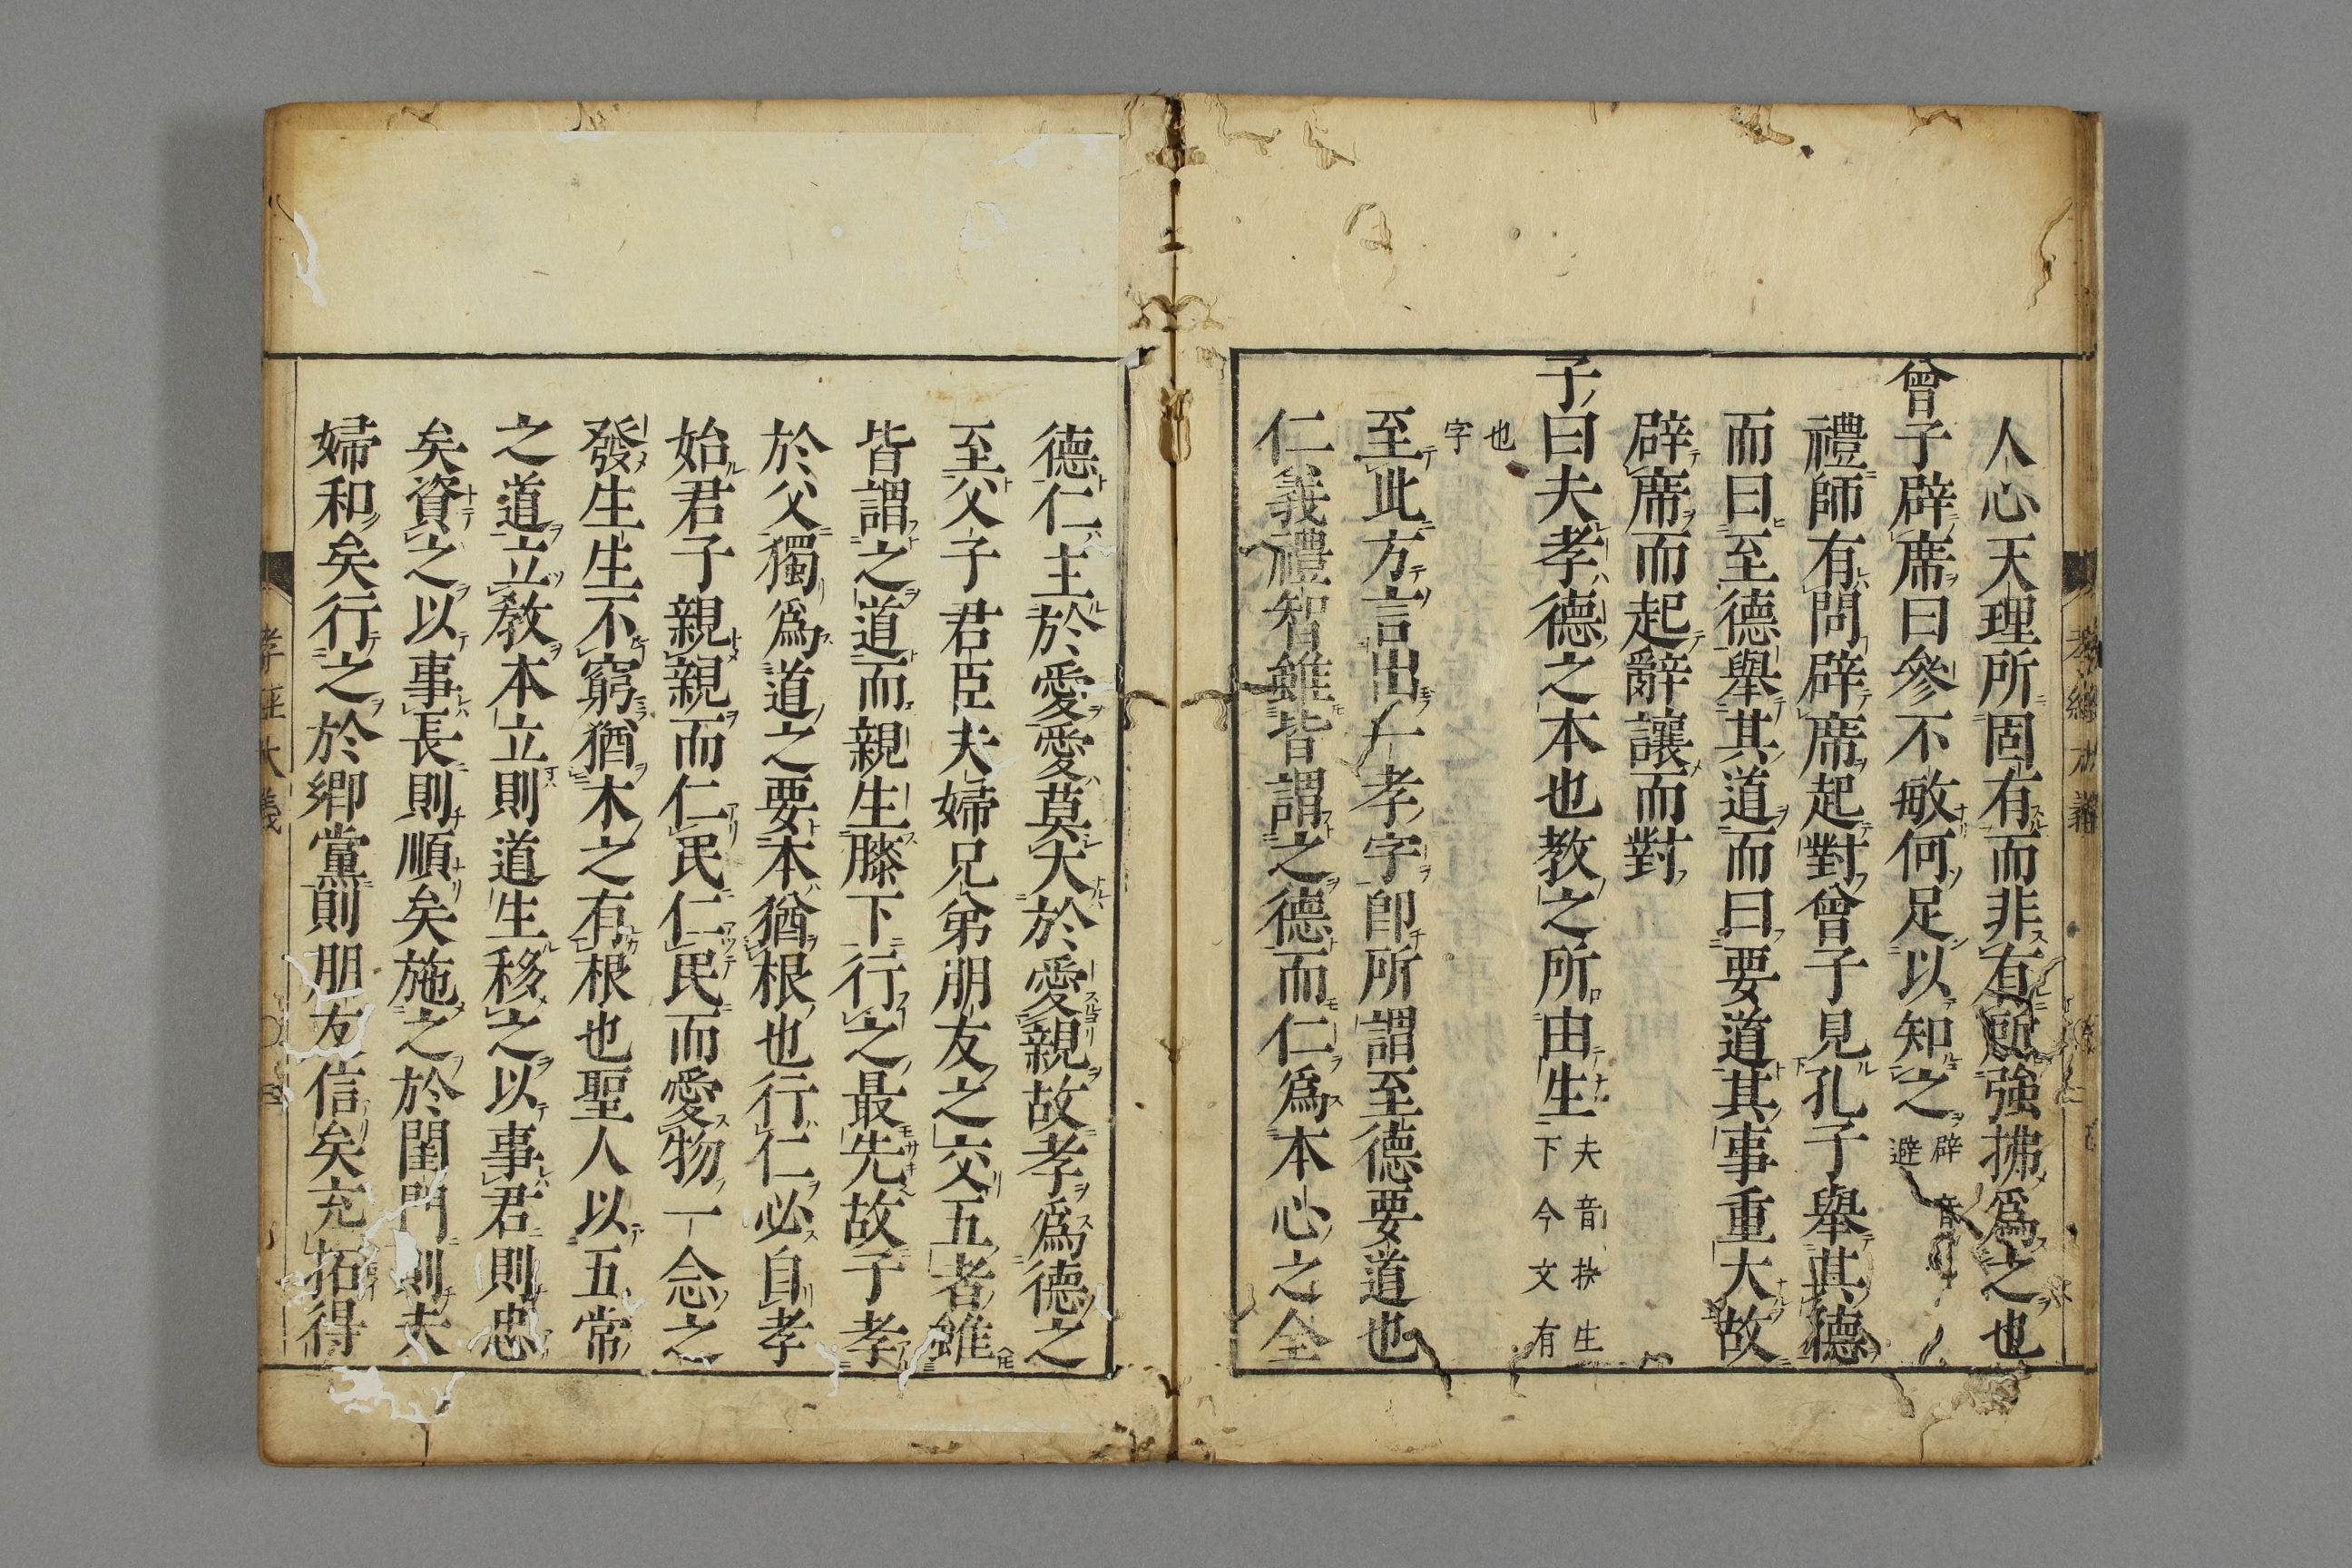 人心天理所固有而非有所強拂爲之也
曾子辟席曰參不敏何足以知之辟音避
禮師有問辟席起對曾子見孔子舉其德
而曰至德舉其道而曰要道其事重大故
辟席而起辭讓而對
子曰夫孝德之本也教之所由生夫音扶生下今文有
也字
至此方言出一孝字即所謂至德要道也
仁義禮智雖皆謂之德而仁爲本心之全
德仁主於愛愛莫大於愛親故孝爲德之
至父子君臣夫婦兄弟朋友之交五者雖
皆謂之道而親生膝下行之最先故子孝
於父獨爲道之要本猶根也行仁必自孝
始君子親親而仁民仁民而愛物一念之
發生生不窮猶木之有根也聖人以五常
之道立教本立則道生移之以事君則忠
矣資之以事長則順矣施之於閨門則夫
婦和矣行之於鄉黨則朋友信矣充拓得
孝經大義